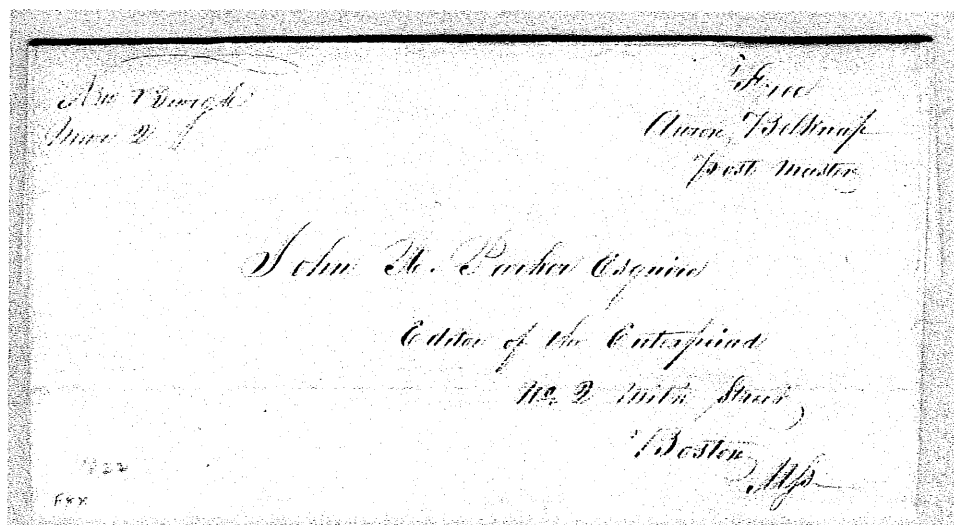 New Burgh
Mar 2
Free
Aaron Belknap
Post Master
John Parker Esquire
Editor of the Enterprise
No. 2 Milk Street
Boston
Ms
1822
FXX